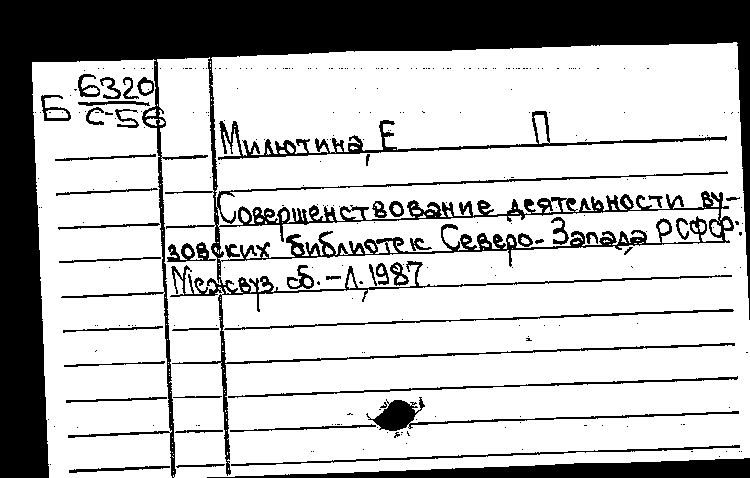 Б Б320
С-56
Милютина, Е П
Совершенствование деятельности ву-
зовских библиотек Северо-Запада РСФСР:
Межвуз. сб. - Л., 1987